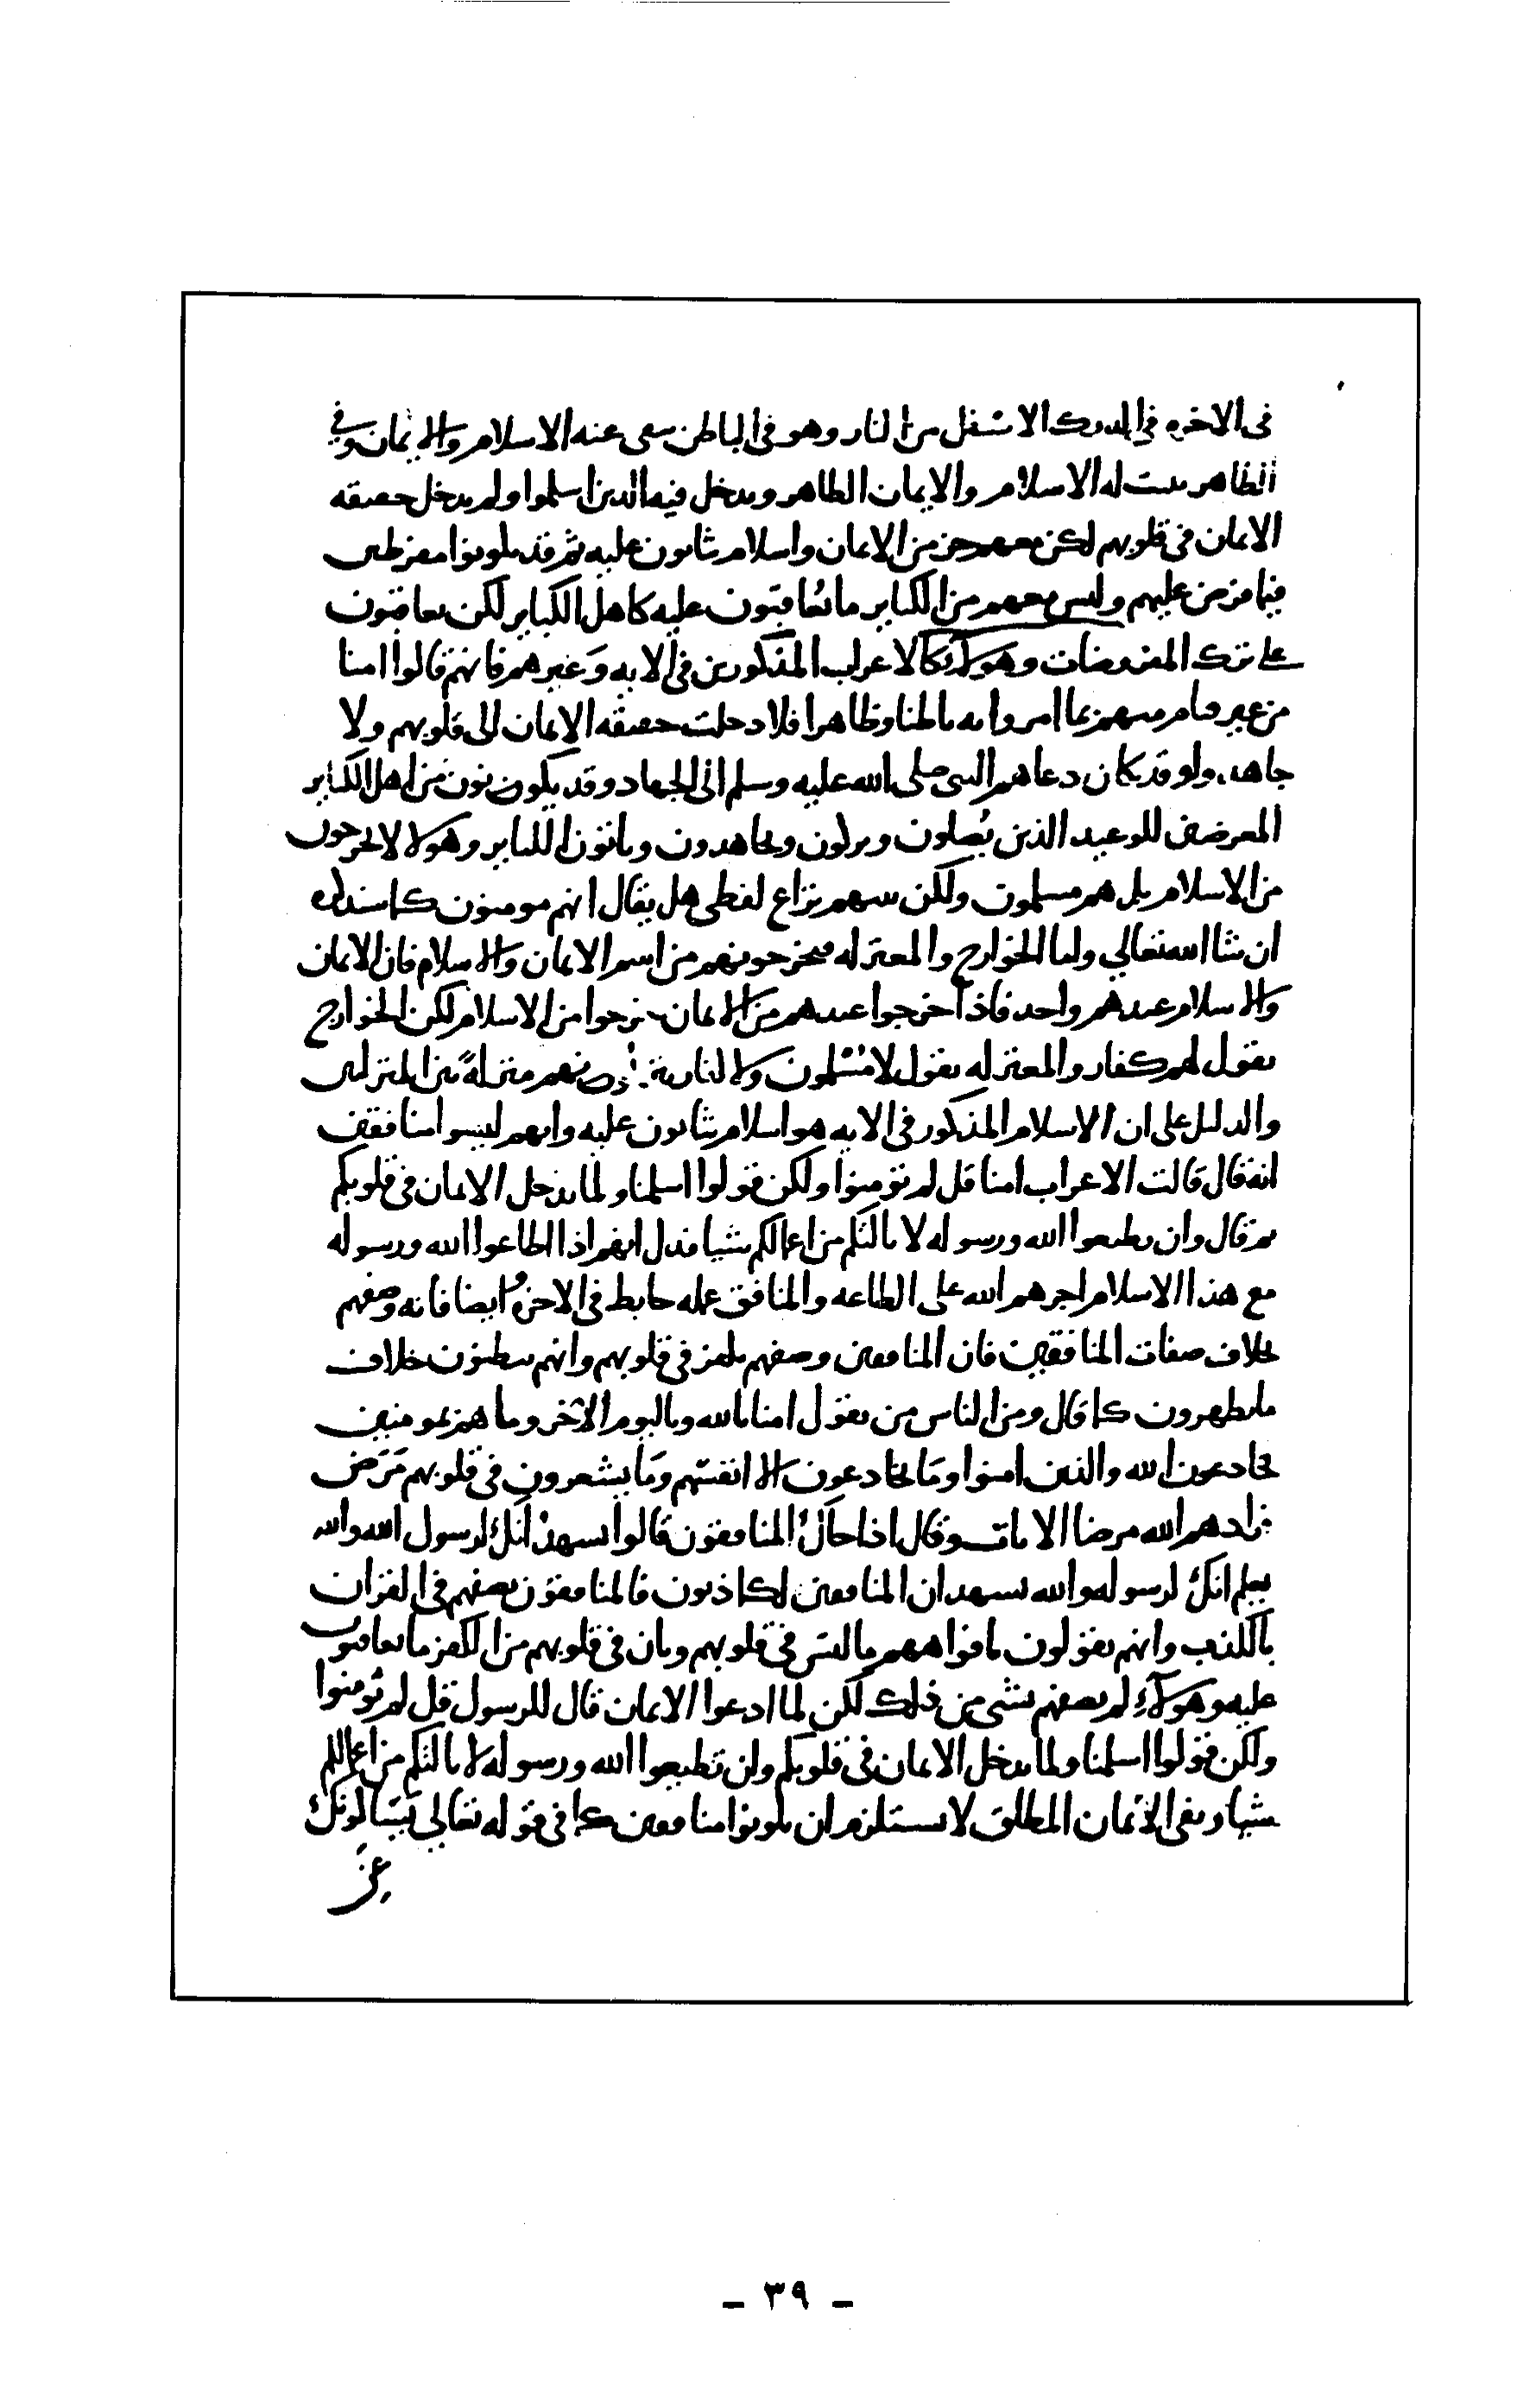 في الاخره في الدرك الاسفل من النار وهو في الباطن ينفى عنه الاسلام والايمان وفي
الظاهر يثبت له الاسلام والايمان الظاهر ويدخل فيه الذين اسلموا ولم يدخل حقيقه
الايمان في قلوبهم لكن معهم جزء من الايمان واسلام يثابون عليه ثم قد يكونوا مفرطين
فيما فرض عليهم وليس معهم من الكباير ما يعاقبون عليه كاهل الكباير لكن يعاقبون
على ترك المفروضات وهولاء كالاعراب المذكورين في الايه وغيرهم فانهم قالوا امنا
من غير قيام منهم بما امروا به باطنا وظاهرا فلا دخلت حقيقه الايمان الى قلوبهم ولا
جاهدوا وقد كان دعاهم النبي صلى الله عليه وسلم الى الجهاد وقد يكونون من اهل الكباير
المعرضين للوعيد الذين يصلون ويزكون ويجاهدون وياتون الكباير وهولا لا يخرجون
من الاسلام بل هم مسلمون ولكن بينهم نزاع لفظي هل يقال انهم مومنون كما سنذكره
ان شا الله تعالي واما الخوارج والمعتزله فيخرجونهم من اسم الايمان والاسلام فان الايمان
والاسلام عندهم واحد فاذا خرجوا عندهم من الايمان خرجوا من الاسلام لكن الخوارج
يقول هم كفار والمعتزله يقول لا مسلمون ولا كفار ينزلونهم منزلة بين المنزلتين
والدليل على ان الاسلام المذكور في الايه هو اسلام يثابون عليه وانهم ليسوا منافقين
انه قال قالت الاعراب امنا قل لم تومنوا ولكن قولوا اسلمنا ولما يدخل الايمان في قلوبكم
ثم قال وان تطيعوا الله ورسوله لا يالتكم من اعمالكم شيا فدل انهم اذا اطاعوا الله ورسوله
مع هذا الاسلام اجرهم الله على الطاعه والمنافق عمله حابط في الاخره وايضا فانه وصفهم
بخلاف صفات المنافقين فان المنافقين وصفهم بكفر في قلوبهم وانهم يبطنون خلاف
ما يظهرون كما قال ومن الناس من يقول امنا بالله وباليوم الاخر وما هم بمومنين
يخادعون الله والذين امنوا وما يخادعون الا انفسهم وما يشعرون في قلوبهم مرض
فزادهم الله مرضا الايات وقال اذا جاك المنافقون قالوا نشهد انك لرسول الله والله
يعلم انك لرسوله والله يشهد ان المنافقين لكاذبون فالمنافقون يصفهم في القران
بالكذب وانهم يقولون بافواههم ما ليس في قلوبهم وبان في قلوبهم من الكفر ما يعاقبون
عليه وهولاء لم يصفهم بشي من ذلك لكن لما ادعوا الايمان قال للرسول قل لم تومنوا
ولكن قولوا اسلمنا ولما يدخل الايمان في قلوبكم وان تطيعوا الله ورسوله لا يالتكم من اعمالكم
شيا ونفي الايمان المطلق لا يستلزم ان يكونوا منافقين كما في قوله تعالي يسالونك
عن
- ٣٩ -